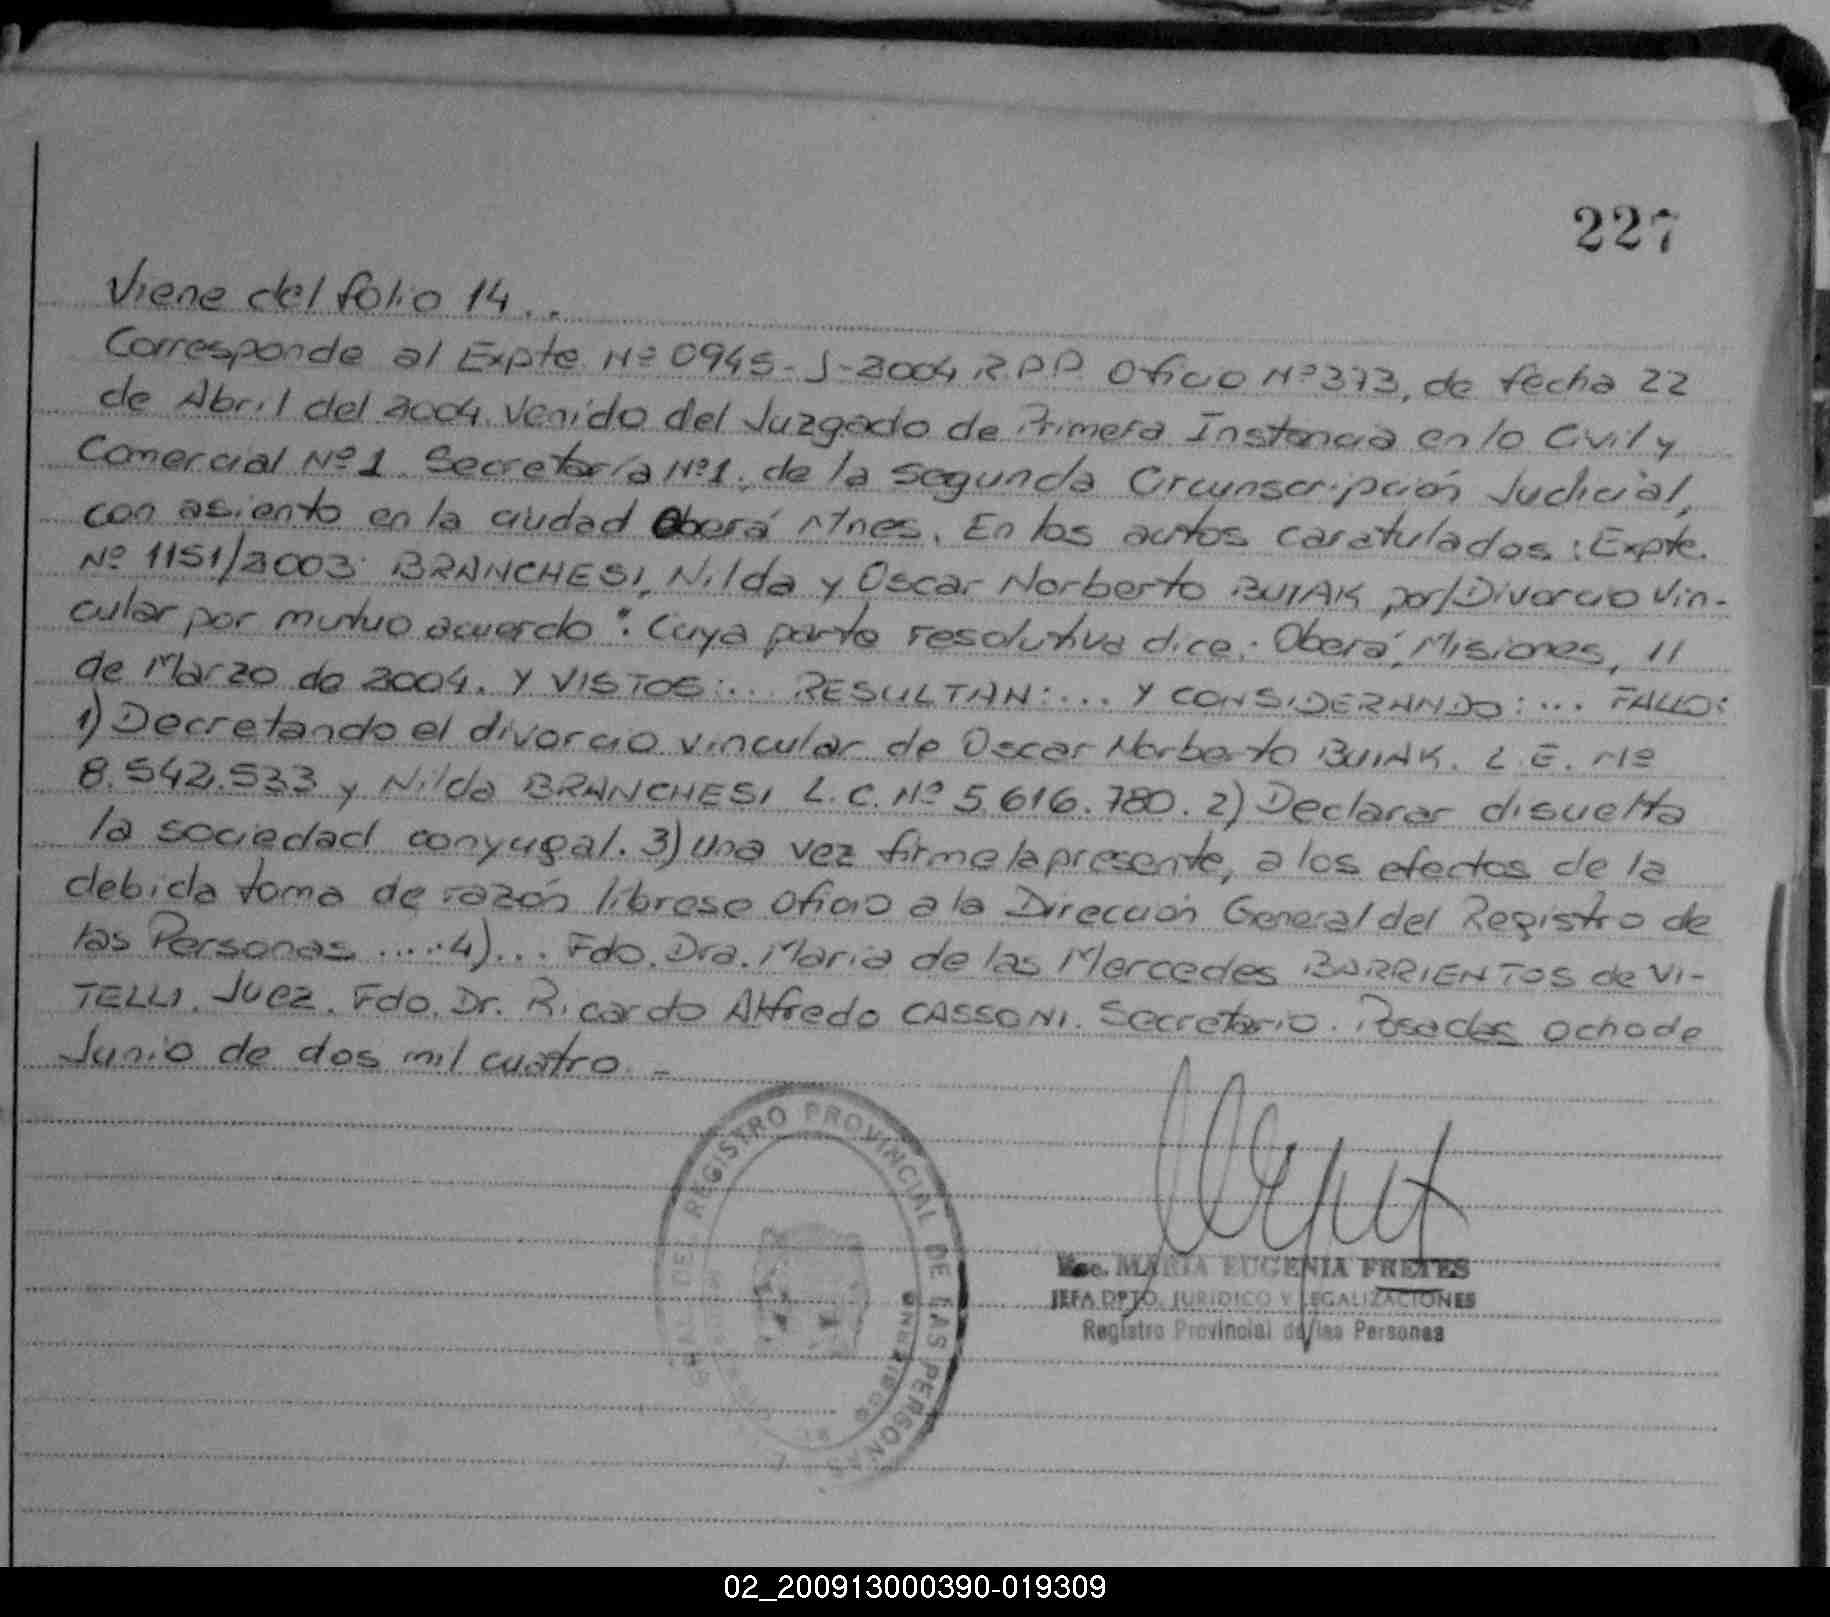 227
Viene del folio 14..
Corresponde al Expte. Nº 0945-J-2004 R.P.P. Oficio Nº 373, de fecha 22
de Abril del 2004. Venido del Juzgado de Primera Instancia en lo Civil y
Comercial Nº 1. Secretaría Nº 1. de la Segunda Circunscripción Judicial,
con asiento en la ciudad Oberá Mnes. En los autos caratulados: Expte.
Nº 1151/2003: BRANCHESI, Nilda y Oscar Norberto BUIAK por/Divorcio Vin-
cular por mutuo acuerdo". Cuya parte resolutiva dice: Oberá, Misiones, 11
de Marzo de 2004. Y VISTOS:... RESULTAN:... Y CONSIDERANDO:... FALLO:
1) Decretando el divorcio vincular de Oscar Norberto BUIAK. L.E. Nº
8.542.533 y Nilda BRANCHESI L.C. Nº 5.616.780. 2) Declarar disuelta
la sociedad conyugal. 3) Una vez firme la presente, a los efectos de la
debida toma de razón librese oficio a la Dirección General del Registro de
las Personas ....4)... Fdo. Dra. Maria de las Mercedes BARRIENTOS de VI-
TELLI. Juez. Fdo. Dr. Ricardo Alfredo CASSONI. Secretario. Posadas ocho de
Junio de dos mil cuatro. -
REGISTRO PROVINCIAL DE LAS PERSONAS
Esc. MARIA EUGENIA FRETES
JEFA DPTO. JURIDICO Y LEGALIZACIONES
Registro Provincial de las Personas
02_200913000390-019309